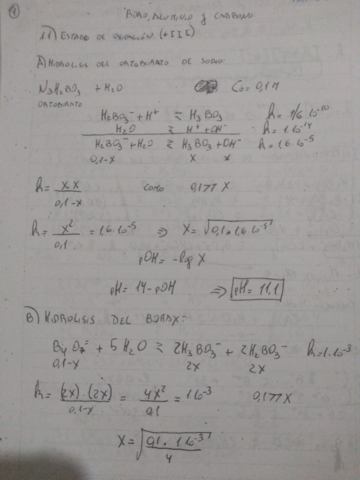 1
BORO, ALUMINIO y CARBONO
1.1) ESTADO DE OXIDACIÓN (+III)
A) HIDROLISIS DEL ORTOBORATO DE SODIO
NaH2BO3 + H2O C0 = 0,1M
ORTOBORATO
H2BO3⁻ + H⁺ ⇌ H3BO3
H2O ⇌ H⁺ + OH⁻ K = 1.10⁻¹⁴
H2BO3⁻ + H2O ⇌ H3BO3 + OH⁻ K = 1.6 10⁻⁵
0,1-x x x
K = x.x / 0,1-x como 0,1>>x
K = x² / 0,1 = 1.6 10⁻⁵ ⇒ x = √0,1.1.6 10⁻⁵
pOH = -log x
pH = 14 - pOH ⇒ pH = 11.1
B) HIDROLISIS DEL BORAX:
B4O7⁼ + 5 H2O ⇌ 2H3BO3 + 2H2BO3⁻ K = 1.10⁻³
0,1-x 2x 2x
K = (2x).(2x) / 0,1-x = 4x² / 0,1 = 1.10⁻³ 0,1>>x
x = √0,1 . 1.10⁻³ / 4